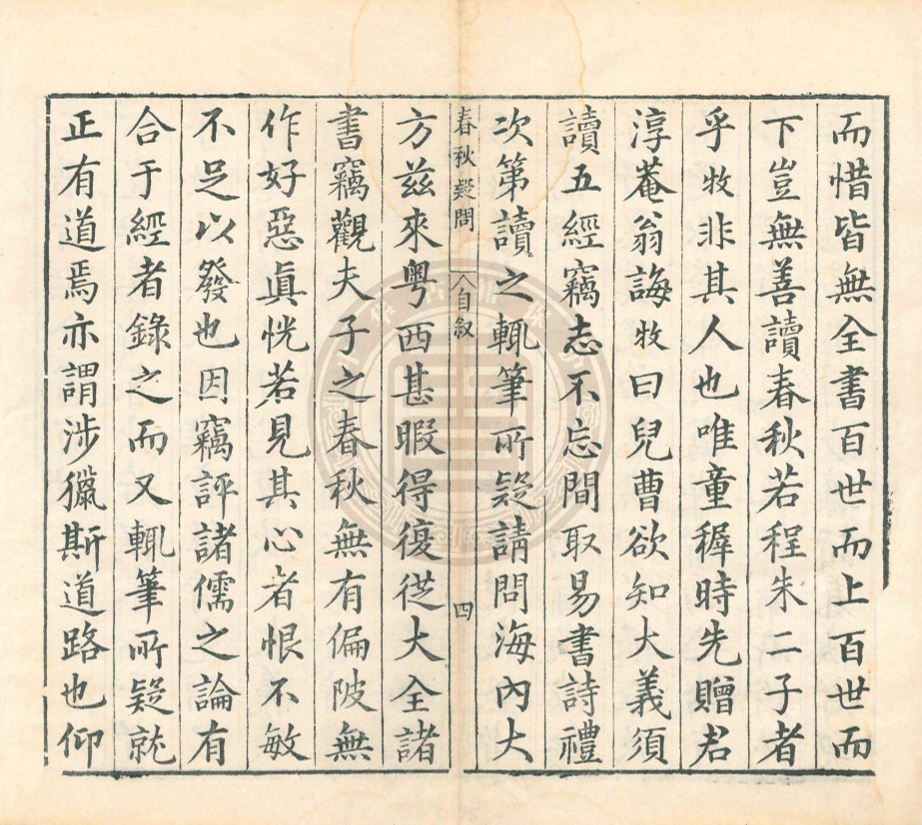 而惜皆無全書百世而上百世而
下豈無善讀春秋若程朱二子者
乎牧非其人也唯童穉時先贈君
淳菴翁誨牧曰兒曹欲知大義須
讀五經竊志不忘間取易書詩禮
次第讀之輒筆所疑請問海內大
春秋疑問 自叙 四
方兹來粤西甚暇得復從大全諸
書竊觀夫子之春秋無有偏陂無
作好惡眞恍若見其心者恨不敏
不足以發也因竊評諸儒之論有
合于經者錄之而又輒筆所疑就
正有道焉亦謂涉獵斯道路也仰